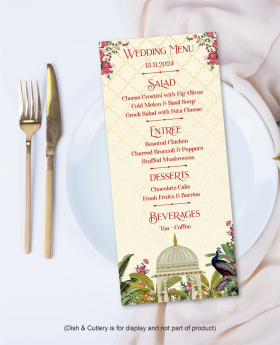 Wedding Menu
15.11.2024
Salad
Cheese Crostini with Fig-Olives
Cold Melon & Basil Soup
Greek Salad with Feta Cheese
Entree
Roasted Chicken
Charred Broccoli & Peppers
Stuffed Mushrooms
Desserts
Chocolate Cake
Fresh Fruits & Berries
Beverages
Tea - Coffin
(Dish & Cutlery is for display and not part of product)